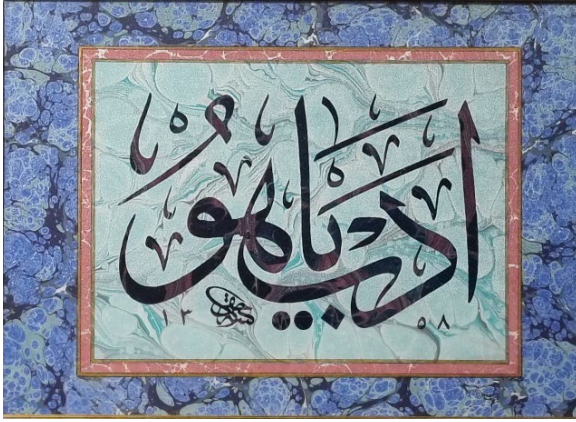 ادب يا هو
٥٨